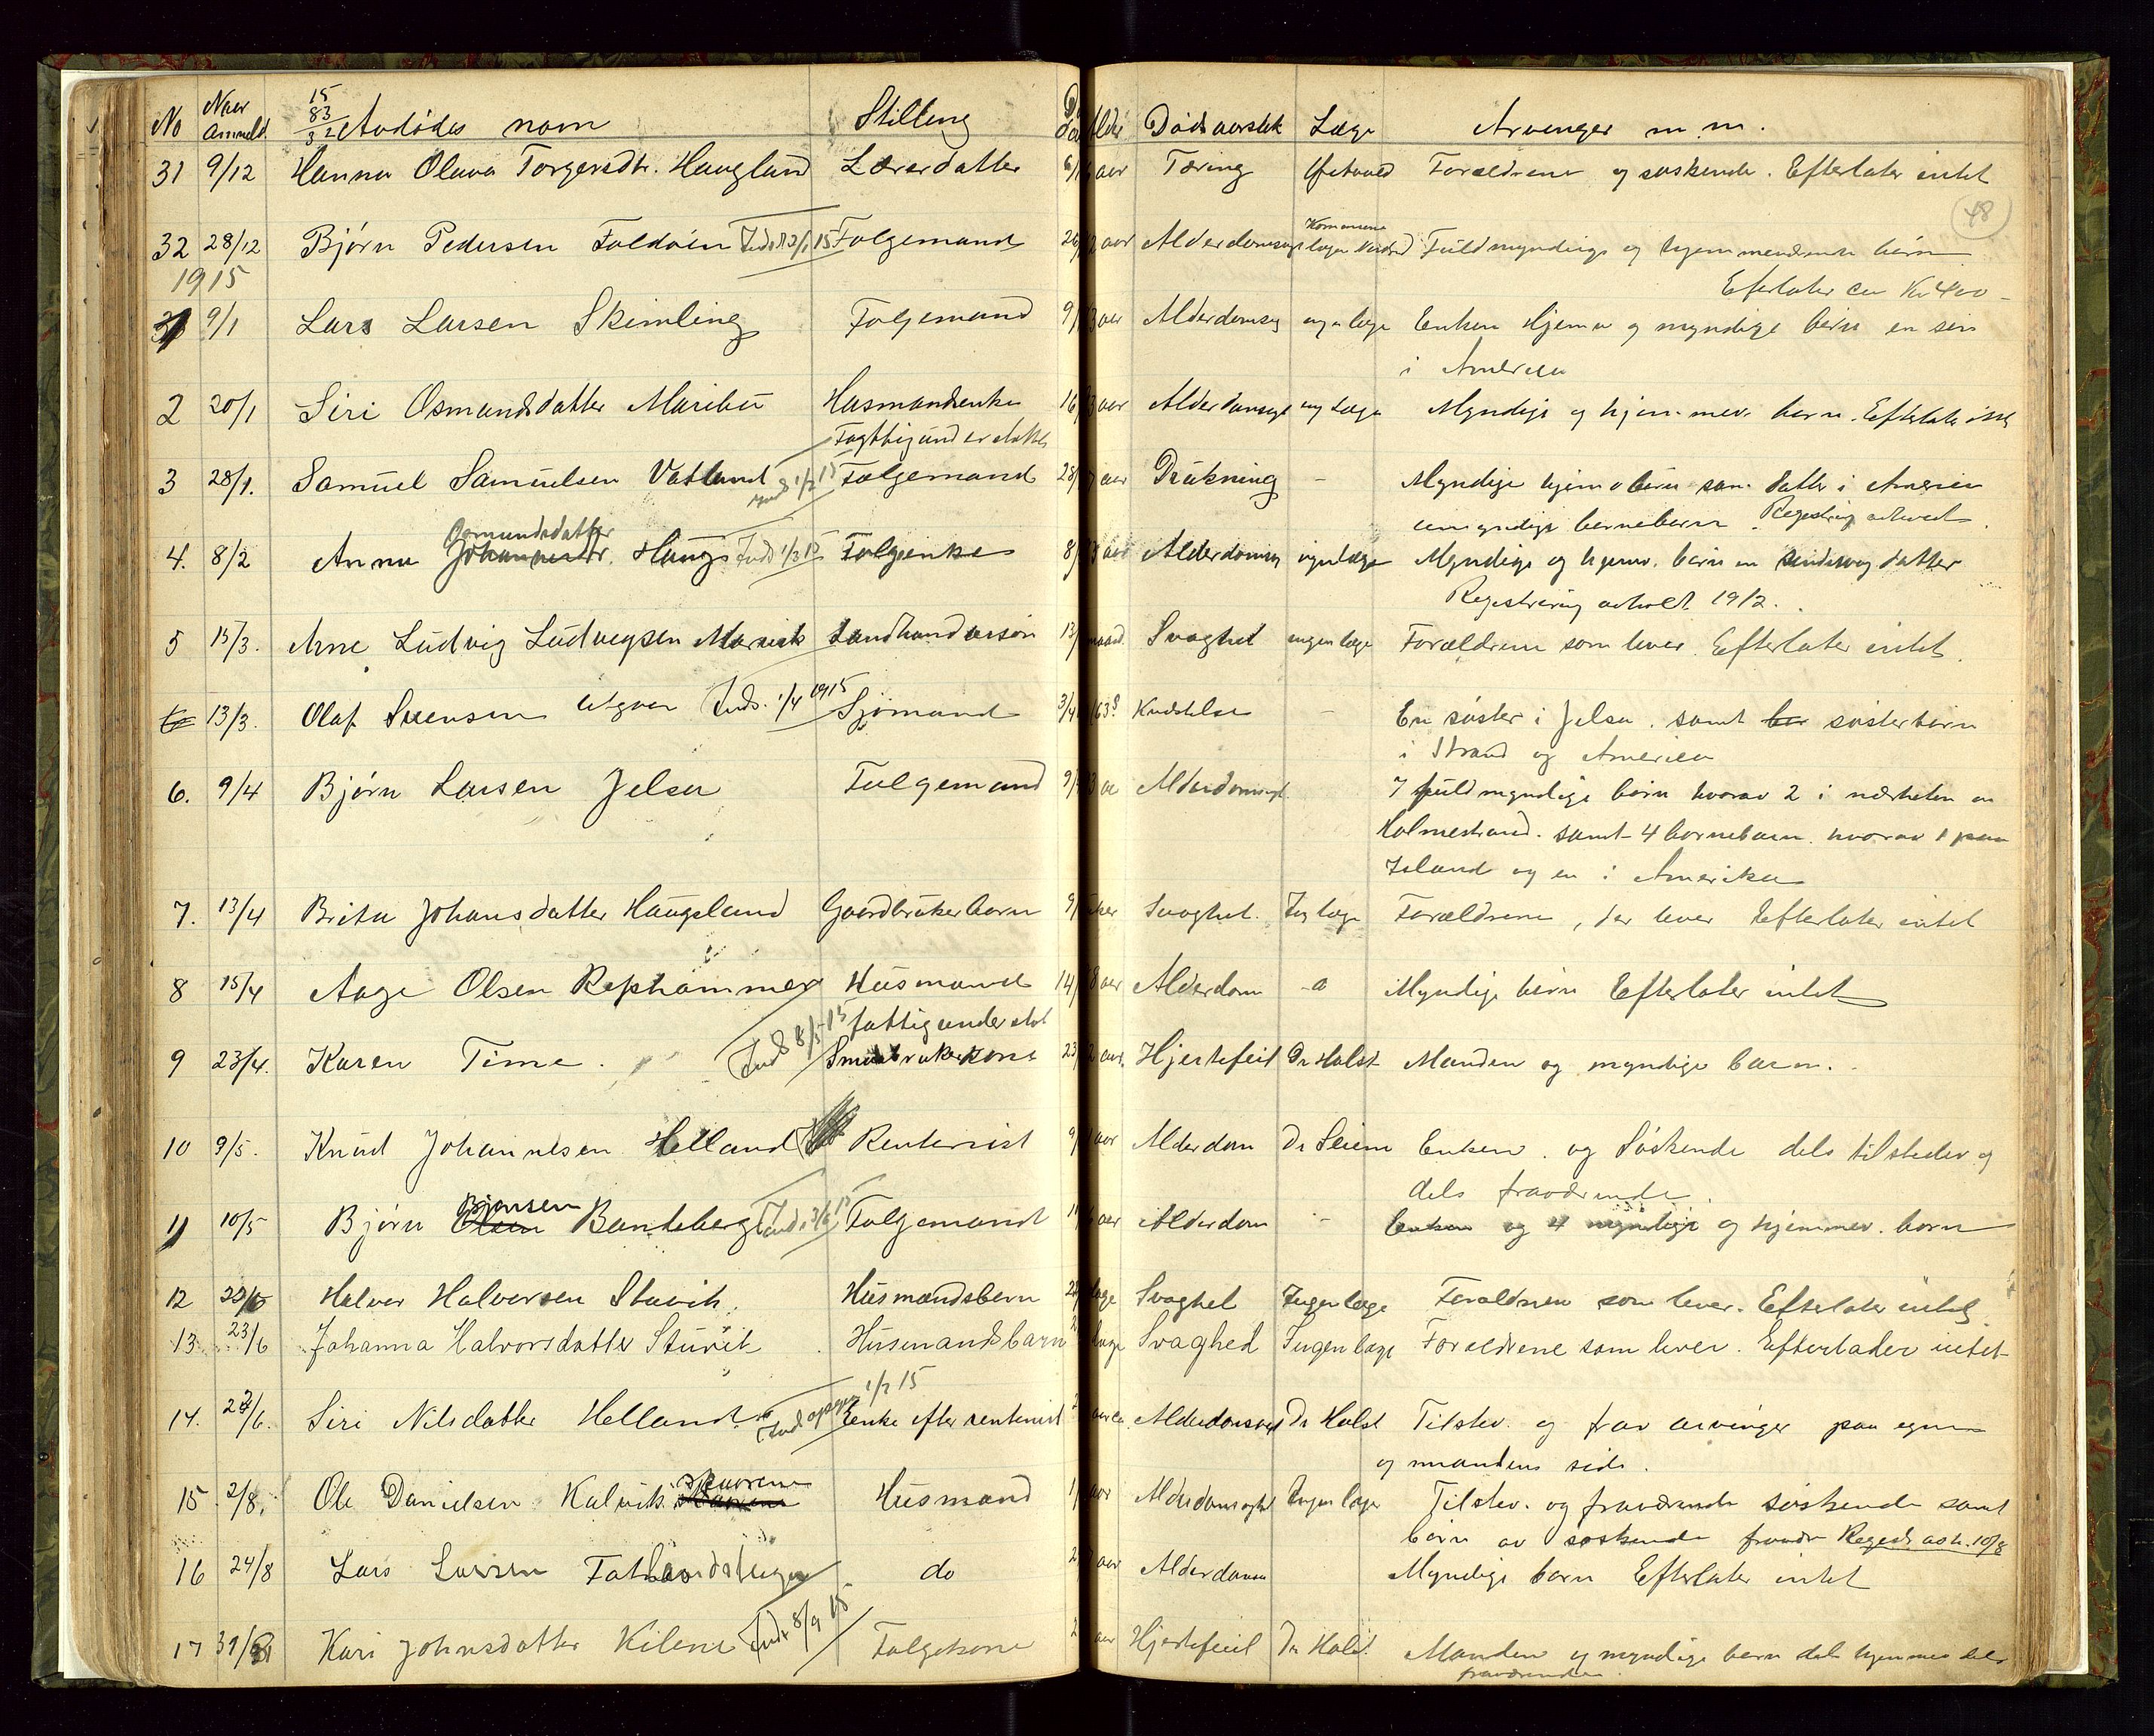 No Naar anmeld. 15 83 32 Avdødes navn Stilling Alder Dødsaarsak Læge Arvinger m. m.
48
31 9/12 Hanna Olava Torgersdtr. Haugland Lærerdatter aar Tæring Forældrene og søskende. Efterlater intet
32 28/12 Bjørn Pedersen Foldøen Inds 12/1 15 Følgemand 26/ aar Alderdomsv Kommune læge Fuldmyndige og hjemmeværende børn
1915 Efterlater ca Kr 400 -
1 9/1 Lars Larsen Skimling Følgemand 9/ aar Alderdomsv ingen læge Enken Hjemv og myndige børn en søn
i Amerika
2 20/1 Siri Osmundsdatter Maribu Husmandsenke 16/ aar Alderdomsv ing læge Myndige og hjem. mev. børn. Efterlater intet
Fattigunderstøttet
3 28/1. Samuel Samuelsen Vatland Inds 1/2 15 Følgemand 28/ aar Drukning - Myndige hjemv børn samt datter i Amerika
umyndige barnebarn. Registrering avholdt.
4. 8/2 Anna Osmundsdatter Johannesdtr. Haugs Inds 1/3 15 Følgeenke 8/ aar Alderdomsv ingen læge Myndige og hjemv. børn en datter
Registrering avholdt 19/2.
5 15/3. Arne Ludvig Ludvigsen Marvik Landhandlersøn 13/ maand. Svaghet ingen læge Forældrene som lever. Efterlater intet.
6 13/3. Olaf Svensen Inds. 1/4 1915 Sjømand 3/4 63? Kvælstelse - En søster i Jelsa. samt søsterbørn
i Strand og Amerika
6. 9/4 Bjørn Larsen Jelsa Følgemand 9/ Alderdomsv. 7 fuldmyndige børn hvorav 2 i nærheten av
Holmestrand. samt 4 barnebarn. hvorav 1 paa
Island og en i Amerika
7. 13/4 Brita Johansdatter Haugsland Gaardbrukerbarn 9/ uker Svaghet. Ing læge Forældrene, der lever Efterlater intet
8 15/4 Aage Olsen Rephammer Husmand 14/ aar Alderdom -a Myndige børn Efterlater intet
Inds 8/5 15 fattigunderstøt
9 23/4. Karen Time. Smaabrukerkone 23/ aar. Hjertefeil Dr Holst Manden og myndige børn.
10 9/5. Knut Johannesen Helland Rentenist 9/ aar Alderdom Dr Seim Enken. og Søskende dels tilstede og
dels fraværende.
11 10/5 Bjørn Bjørnsen Olsen Bandeberg Inds 1/6 15 Følgemand aar Alderdom - Enken og 4 myndige og hjemmev. børn
12 23/6 Halvor Halvorsen Stuvik. Husmandsbarn dage Svaghet Ingen læge Forældrene som lever. Efterlater intet
13 23/6 Johanna Halvorsdatter Stuvik Husmandsbarn dage Svaghed Ingen læge Forældrene som lever. Efterlader intet
1/7 15
14. 27/6. Siri Nilsdatter Helland Enke efter rentenist aar Alderdomsv Dr Holst Tilstev. og frav arvinger paa egen
og mandens side.
15 2/8. Ole Danielsen Kalvik Husmand aar Alderdomsvaghet Ingen læge Tilstev. og fraværende søskende samt
børn av søskende Registr avh. 10/8
16 24/8 Lars Larsen do aar Alderdom Myndige børn Efterlater intet
17 31/8 Kari Johnsdatter Kilene Inds 8/9 15 Følgekone aar Hjertefeil Dr Holst. Manden og myndige børn dels hjemme dels
fraværende.